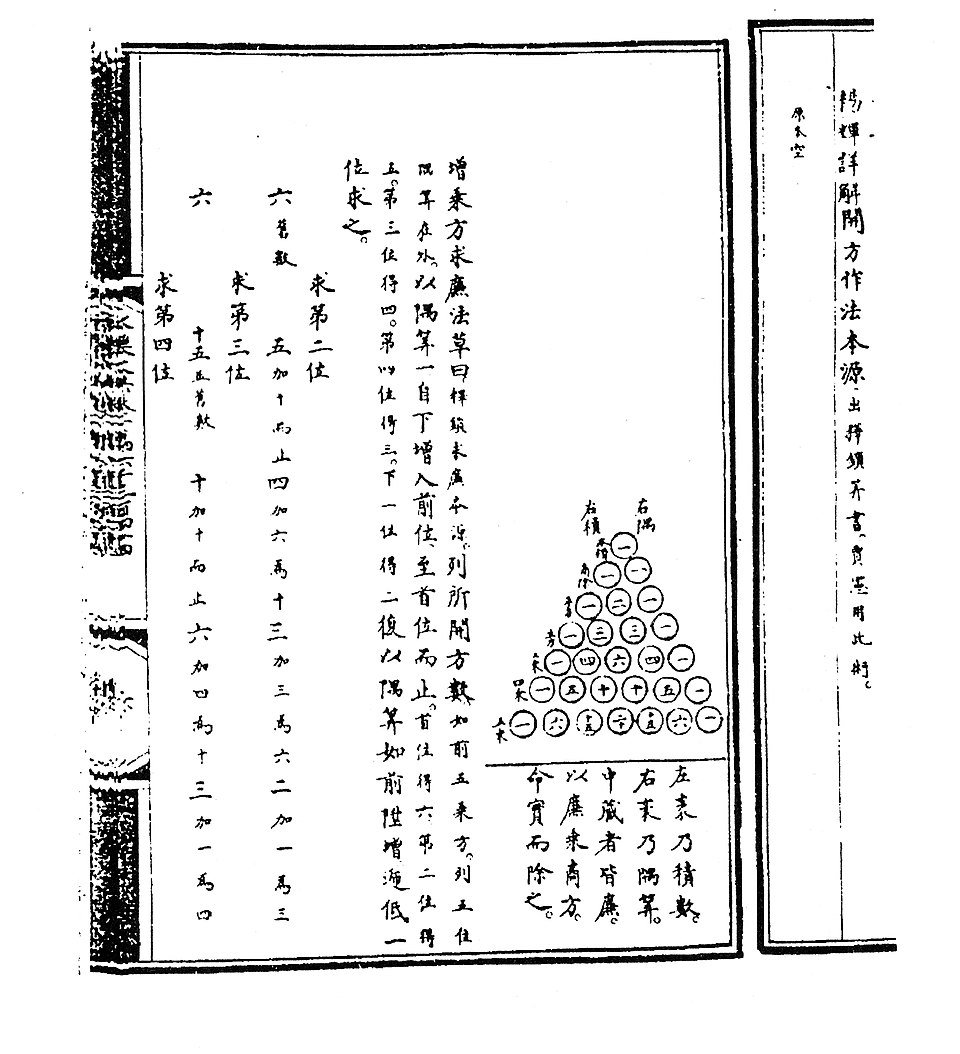 楊輝詳解開方作法本源出釋鎖筭書賈憲用此術。
原本空
右隅
右積
本積
商除
一
一 一
一 二 一
一 三 三 一
一 四 六 四 一
四乘 一 五 十 十 五 一
五乘 一 六 十五 二十 十五 六 一
左袤乃積數。
右袤乃隅筭。
中藏者皆廉。
以廉乘商方。
命實而除之。
增乘方求廉法草曰釋鎖求廉本源。列所開方數。如前五乘方。列五位
隅筭在外。以隅筭一自下增入前位至首位而止。首位得六第二位得
五。第三位得四。第四位得三。下一位得二復以隅筭如前陞增遞低一
位求之。
求第二位
六舊數 五加十而止四加六為十三加三為六二加一為三
求第三位
六 十五並舊數 十加十而止六加四為十三加一為四
求第四位